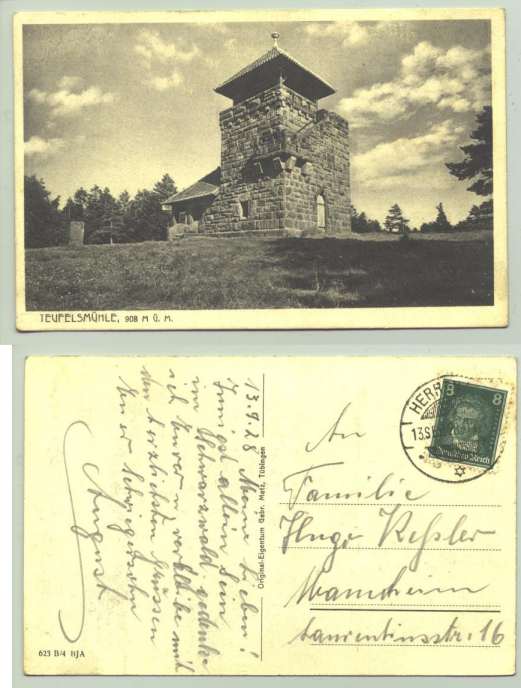 TEUFELSMÜHLE, 908 M Ü. M.
13.9.28 Meine Lieben!
Innigst allein sein
im Schwarzwald, gedenke
ich Eurer u. verbleibe mit
den herzlichsten Grüssen
Euer Schwiegersohn
August
Original-Eigentum Gebr. Metz, Tübingen
623 B/4 BJA
HERR
13.S
8 8
Deutsches Reich
An
Familie
Hugo Keßler
Mannheim
Laurentiusstr. 16